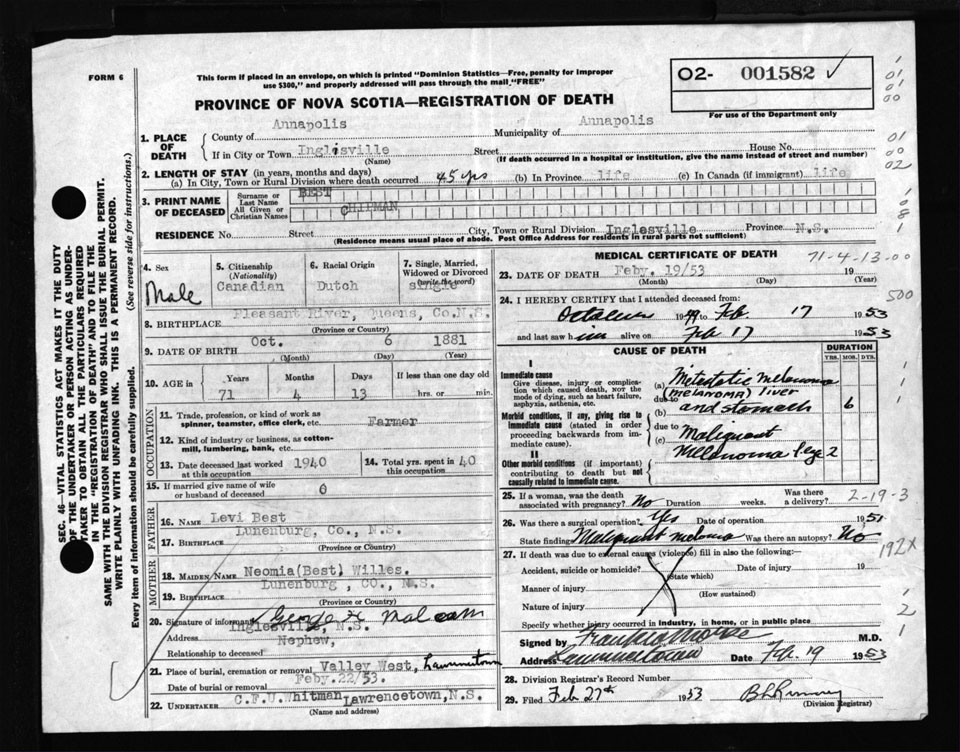 FORM 6
This form if placed in an envelope, on which is printed "Dominion Statistics—Free, penalty for improper
use $300," and properly addressed will pass through the mail "FREE"
O2- 001582 ✓
For use of the Department only
PROVINCE OF NOVA SCOTIA—REGISTRATION OF DEATH
1. PLACE OF DEATH
County of Annapolis Municipality of Annapolis
If in City or Town Inglisville Street House No.
(Name) (If death occurred in a hospital or institution, give the name instead of street and number)
2. LENGTH OF STAY (in years, months and days)
(a) In City, Town or Rural Division where death occurred 45 yrs (b) In Province life (c) In Canada (if immigrant) life
3. PRINT NAME OF DECEASED
Surname or Last Name BEST
All Given or Christian Names CHIPMAN
RESIDENCE No. Street City, Town or Rural Division Inglesville Province N.S.
(Residence means usual place of abode. Post Office Address for residents in rural parts not sufficient)
4. Sex Male
5. Citizenship (Nationality) Canadian
6. Racial Origin Dutch
7. Single, Married, Widowed or Divorced (write the word) single
8. BIRTHPLACE Pleasant River, Queens, Co.N.S.
(Province or Country)
9. DATE OF BIRTH Oct. 6 1881
(Month) (Day) (Year)
10. AGE in Years Months Days If less than one day old
71 4 13 hrs. or min.
OCCUPATION
11. Trade, profession, or kind of work as spinner, teamster, office clerk, etc. Farmer
12. Kind of industry or business, as cotton-mill, lumbering, bank, etc.
13. Date deceased last worked at this occupation 1940 14. Total yrs. spent in this occupation 40
15. If married give name of wife or husband of deceased 0
FATHER
16. Name Levi Best
17. Birthplace Lunenburg, Co., N.S.
(Province or Country)
MOTHER
18. MAIDEN NAME Neomia(Best) Willes.
19. BIRTHPLACE Lunenburg, CO., N.S.
(Province or Country)
20. Signature of informant George
Address Inglesville, N.S.
Relationship to deceased Nephew,
21. Place of burial, cremation or removal Valley West,
Date of burial or removal Feby.22/53.
22. UNDERTAKER C.F.U.Whitman Lawrencetown,N.S.
(Name and address)
MEDICAL CERTIFICATE OF DEATH
71-4-13-00
23. DATE OF DEATH Feby. 19/53 19
(Month) (Day) (Year)
24. I HEREBY CERTIFY that I attended deceased from:
19 49 to Feb 17 1953
and last saw him alive on Feb 17 1953
CAUSE OF DEATH
DURATION
YRS. MOS. DYS.
I
Immediate cause
Give disease, injury or complication which caused death, NOT the mode of dying, such as heart failure, asphyxia, asthenia, etc.
(a) Metastatic melanoma
(MELANOMA) liver
due to
(b) and stomach 6
Morbid conditions, if any, giving rise to immediate cause (stated in order proceeding backwards from immediate cause).
due to
(c) Malignant
Melanoma 2
II
Other morbid conditions (if important) contributing to death but not causally related to immediate cause.
25. If a woman, was the death associated with pregnancy? No Duration weeks. Was there a delivery?
2-19-3
26. Was there a surgical operation? Yes Date of operation 1951
State finding Malignant meloma Was there an autopsy? No
192X
27. If death was due to external causes (violence) fill in also the following:—
Accident, suicide or homicide? Date of injury 19
(State which)
Manner of injury
(How sustained)
Nature of injury
Specify whether injury occurred in industry, in home, or in public place
Signed by M.D.
Address Date Feb. 19 1953
28. Division Registrar's Record Number
29. Filed Feb 27th 1953
(Division Registrar)
SEC. 46—VITAL STATISTICS ACT MAKES IT THE DUTY
OF THE UNDERTAKER OR PERSON ACTING AS UNDER-
TAKER TO OBTAIN ALL THE PARTICULARS REQUIRED
IN THE "REGISTRATION OF DEATH" AND TO FILE THE
SAME WITH THE DIVISION REGISTRAR WHO SHALL ISSUE THE BURIAL PERMIT.
WRITE PLAINLY WITH UNFADING INK. THIS IS A PERMANENT RECORD.
Every item of information should be carefully supplied. (See reverse side for instructions.)
01
01
00
01
00
02
500